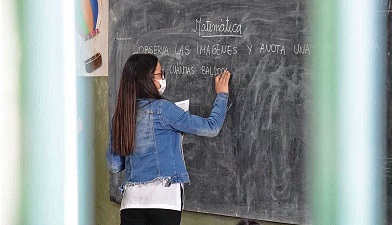 Matemática
OBSERVA LAS IMÁGENES Y ANOTA UNA
CUÁNTAS BALDOS